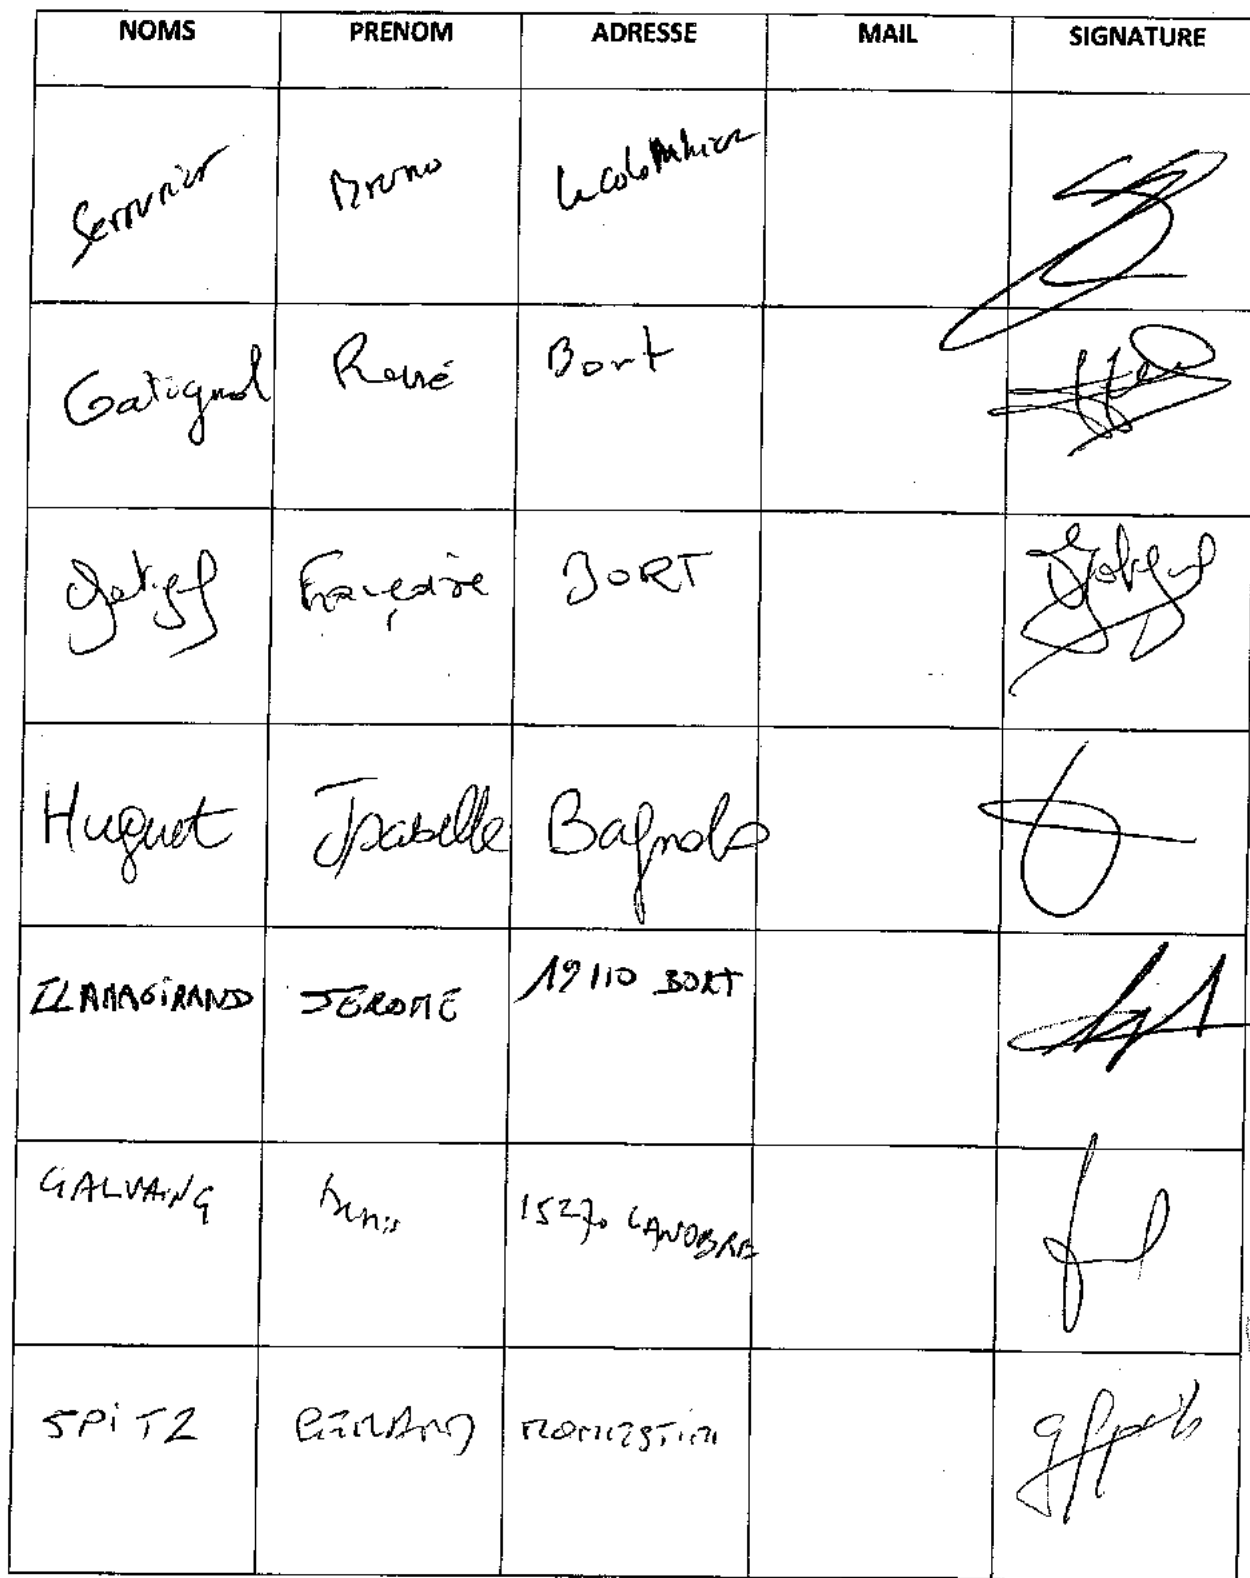 NOMS PRENOM ADRESSE MAIL SIGNATURE
Serrurier Bruno
Gatignol René Bort
Françoise BORT
Huguet Isabelle Bagnols
JEROME 19110 BORT
GALVAING Denis 15270 LANOBRE
SPITZ GERARD